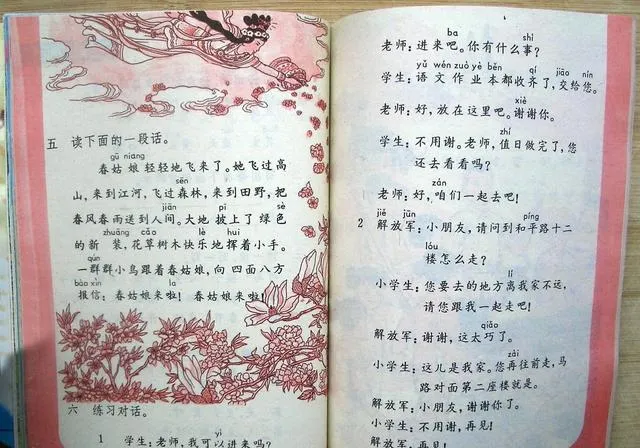 五 读下面的一段话。
gū niang
春姑娘轻轻地飞来了。她飞过高
sēn
山,来到江河,飞过森林,来到田野,把
jiān pī sè
春风春雨送到人间。大地披上了绿色
zhuāng cǎo lè huī
的新装,花草树木快乐地挥着小手。
qún
一群群小鸟跟着春姑娘,向四面八方
bào xìn la
报信:春姑娘来啦!春姑娘来啦!
六 练习对话。
yǐ
1 学生:老师,我可以进来吗?
ba shì
老师:进来吧。你有什么事?
yǔ wén zuò yè běn qí jiāo nín
学生:语文作业本都收齐了,交给您。
xiè
老师:好,放在这里吧。谢谢你。
zhí
学生:不用谢。老师,值日做完了,您
还去看看吗?
zán
老师:好,咱们一起去吧!
jiě jūn píng
2 解放军:小朋友,请问到和平路十二
lóu
楼怎么走?
lí
小学生:您要去的地方离我家不远,
请您跟我一起走吧!
qiǎo
解放军:谢谢,这太巧了。
zài
小学生:这儿是我家。您再往前走,马
路对面第二座楼就是。
解放军:小朋友,谢谢你了。
小学生:不用谢,再见!
解放军:再见!